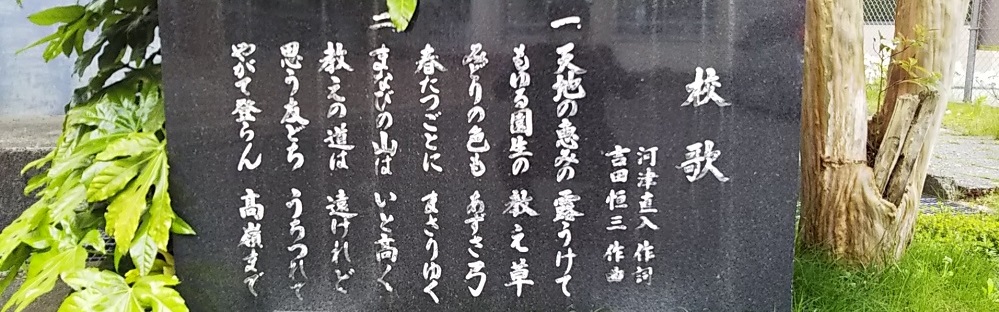 校歌
河津直入 作詞
吉田恒三 作曲
一 天地の恵みの 露うけて
もゆる園生の 教え草
みどりの色も あずさ弓
春たつごとに まさりゆく
二 まなびの山は いと高く
教えの道は 遠けれど
思う友どち うちつれて
やがて登らん 高嶺まで